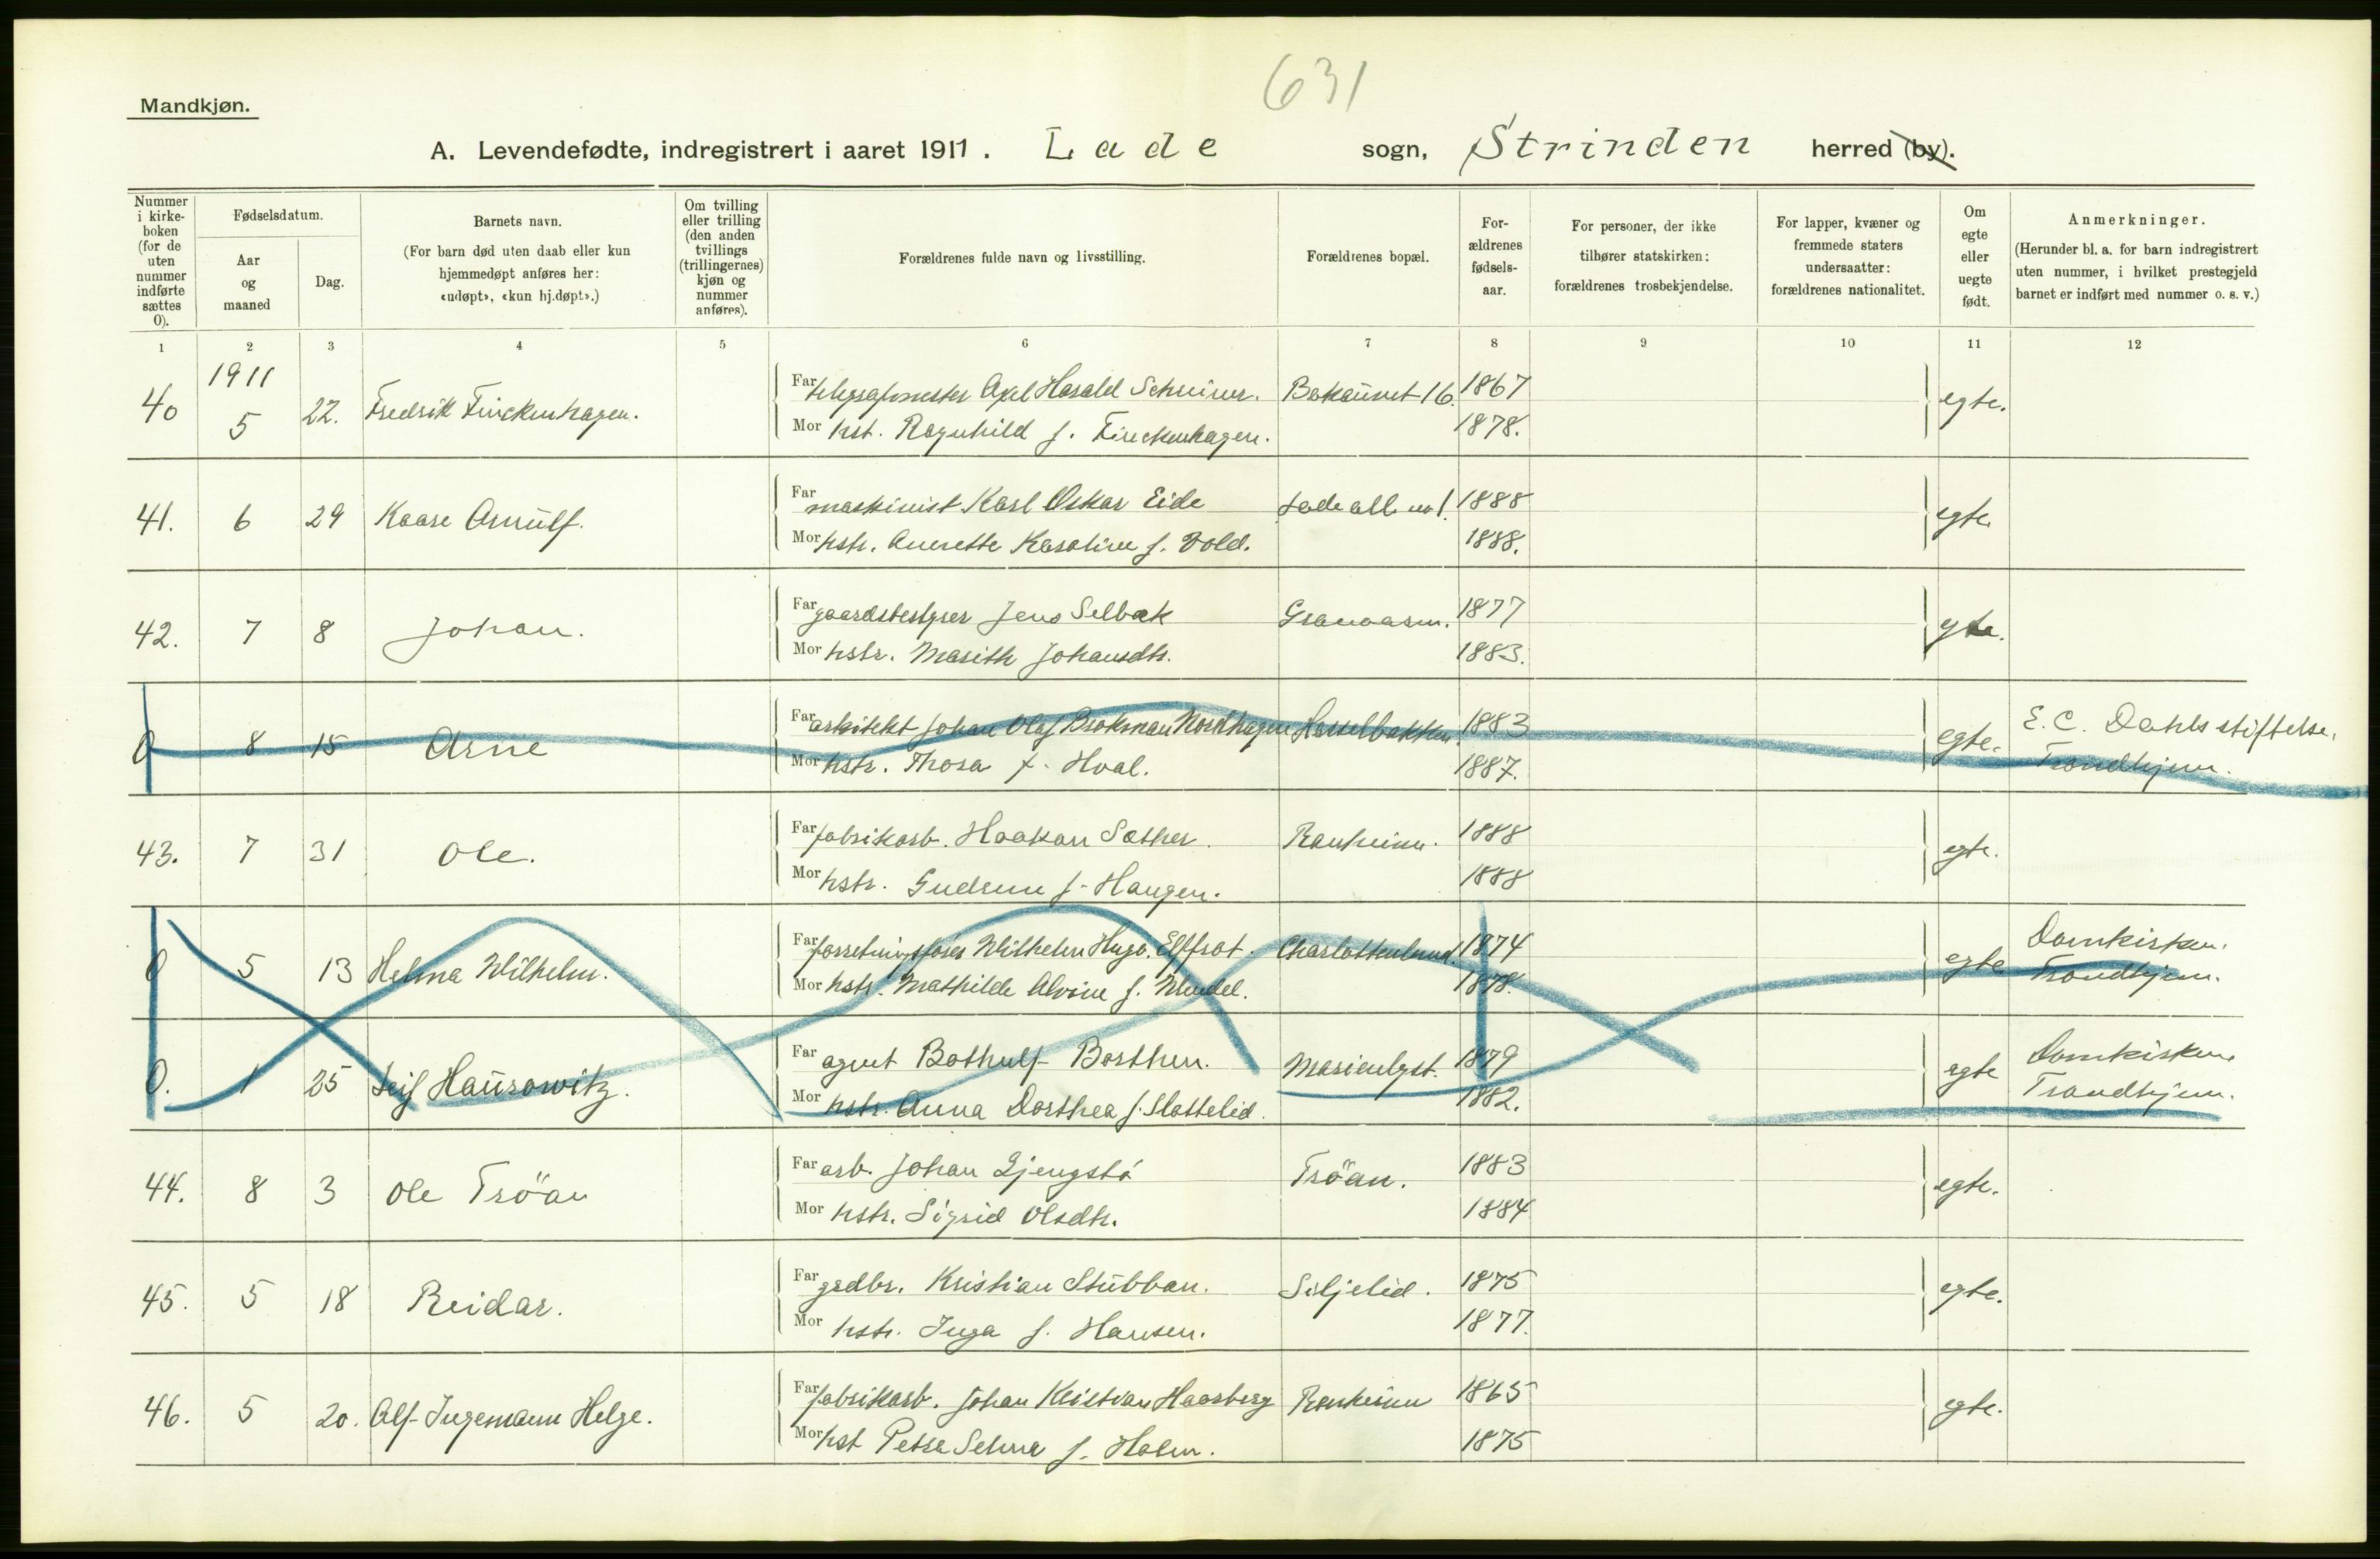 631
Mandkjøn.
A. Levendefødte, indregistrert i aaret 1911. Lade sogn, Strinden herred (by).
Nummer i kirkeboken (for de uten nummer indførte sættes 0).
Fødselsdatum.
Aar og maaned
Dag.
Barnets navn.
(For barn død uten daab eller kun hjemmedøpt anføres her: «udøpt», «kun hj.døpt».)
Om tvilling eller trilling (den anden tvillings (trillingernes) kjøn og nummer anføres).
Forældrenes fulde navn og livsstilling.
Forældrenes bopæl.
Forældrenes fødselsaar.
For personer, der ikke tilhører statskirken: forældrenes trosbekjendelse.
For lapper, kvæner og fremmede staters undersaatter: forældrenes nationalitet.
Om egte eller uegte født.
Anmerkninger.
(Herunder bl. a. for barn indregistrert uten nummer, i hvilket prestegjeld barnet er indført med nummer o. s. v.)
1 2 3 4 5 6 7 8 9 10 11 12
1911
40 5 22. Fredrik Finckenhagen. Far telegrafmester Axel Harald Schreiner. Bakaunet 16. 1867 egte.
Mor hst. Ragnhild f. Finckenhagen. 1878.
41. 6 29 Kaare Arnulf. Far maskinist Karl Oskar Eide Lade all no 1. 1888 egte
Mor hstr. Anerette Karoline f. Vold. 1888.
42. 7 8 Johan. Far gaardsbestyrer Jens Selbæk Granaasen. 1877 egte.
Mor hstr. Marith Johansdtr. 1883.
0 8 15 Arne Far arkitekt Johan Olaf Brokman Nordhagen Hasselbakken. 1883 egte. E. C. Dahls stiftelse,
Mor hstr. Thora f. Hval. 1887. Trondhjem.
43. 7 31 Ole. Far fabrikarb. Haakon Sæther. Ranheim. 1888 egte.
Mor hstr. Gudrun f. Haugen. 1888
0 5 13 Helma Wilhelm. Far forretningsfører Wilhelm Hugo Elffrot. Charlottenlund. 1874 egte Domkirken.
Mor hstr. Mathilde Alvine f. 1878. Trondhjem.
0. 1 25 Leif Hausowitz. Far agent Bothulf Borthen. Marienlyst. 1879 egte Domkirken
Mor hstr. Anna Dorthea f. Slottelid. 1882. Trondhjem.
44. 8 3 Ole Tröan Far arb. Johan Gjengstö Tröan. 1883 egte.
Mor hstr. Sigrid Olsdtr. 1884
45. 5 18 Reidar. Far grdbr. Kristian Stubban. Siljelid. 1875 egte.
Mor hstr. Inga f. Hansen. 1877.
46. 5 20. Alf Ingemann Helge. Far fabrikarb. Johan Kristian Haarberg Ranheim 1865 egte.
Mor hst Petra Selma f. Holm. 1875